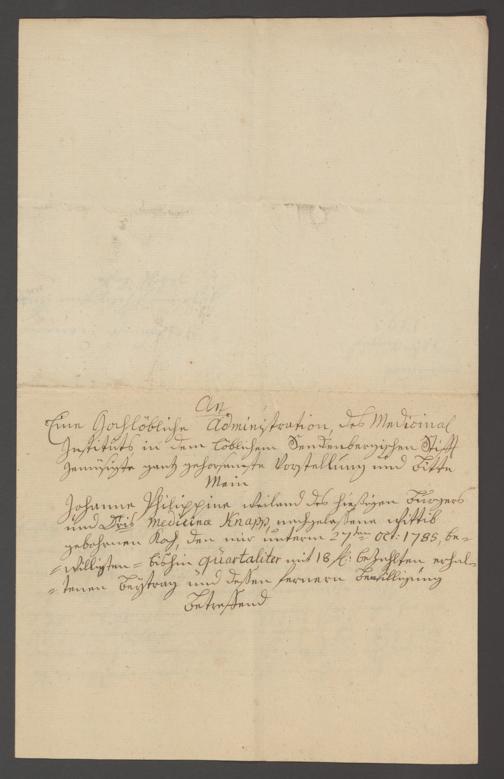 An
Eine Hochlöbliche Administration, des Medicinal
Instituts in dem löblichem Senckenbergischen Stifft
gantz gehorsamste Vorstellung und Bitte
Mein
Johanna Philippina weiland des hiesigen Burgers
und Dris Medicinæ Knapp, nachgelassene Wittib
gebohrnen Koch, den mir unterm 27ten Oct: 1785, be-
=willigten = bishin quartaliter mit 18 fl: bezahlten erhal-
=tenen Beÿtrag und dessen fernern Bewilligung
Betreffend